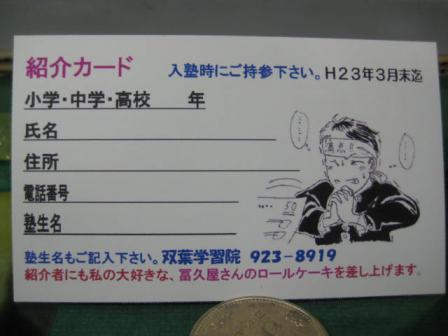 紹介カード
入塾時にご持参下さい。H23年3月末迄
小学・中学・高校 年
氏名
住所
電話番号
塾生名
塾生名もご記入下さい。双葉学習院 923-8919
紹介者にも私の大好きな、冨久屋さんのロールケーキを差し上げます。